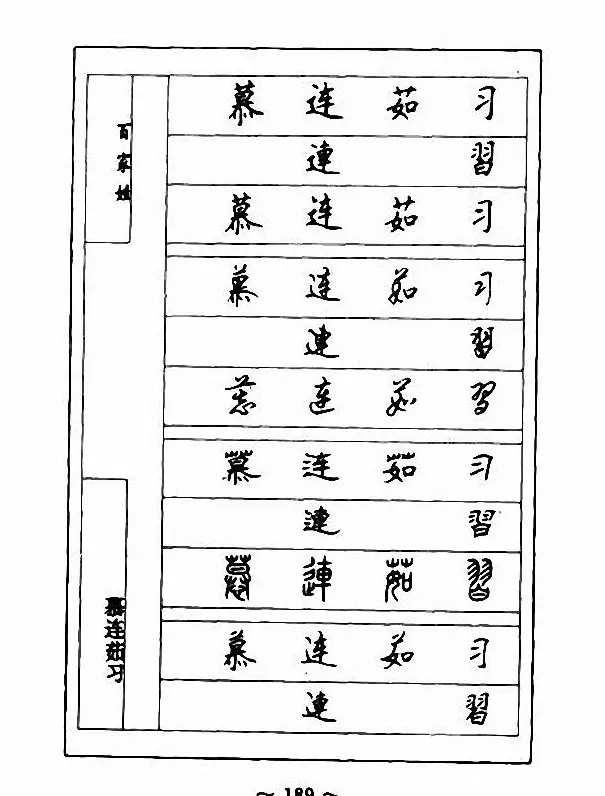 百家姓
慕连茹习
慕 连 茹 习
連 習
慕 连 茹 习
慕 连 茹 习
連 習
慕 连 茹 習
慕 连 茹 习
連 習
慕 連 茹 習
慕 连 茹 习
連 習
~ 189 ~